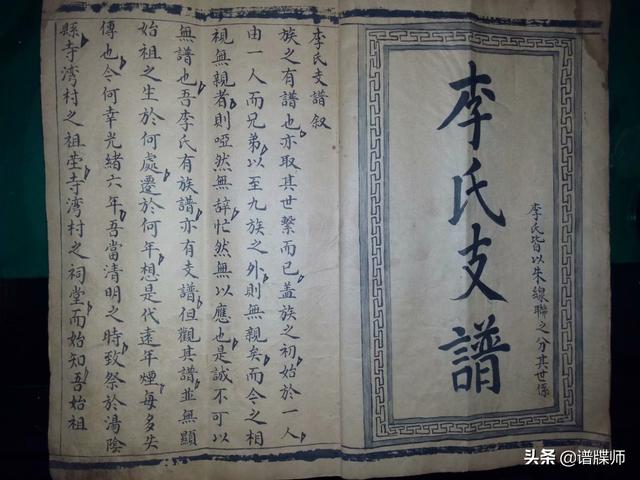 李氏支譜
李氏皆以朱線聯之分其世係
李氏支譜叙
族之有譜也亦取其世繫而已盖族之初始於一人
由一人而兄弟以至九族之外則無親矣而令之相
視無親者則啞然無辭忙然無以應也是誠不可以
無譜也吾李氏有族譜亦有支譜但觀其譜並無顯
始祖之生於何處遷於何年想是代遠年煙每多失
傳也今何幸光緒六年吾當清明之時致祭於湯陰
縣寺湾村之祖塋寺湾村之祠堂而始知吾始祖
头条 @谱牒师